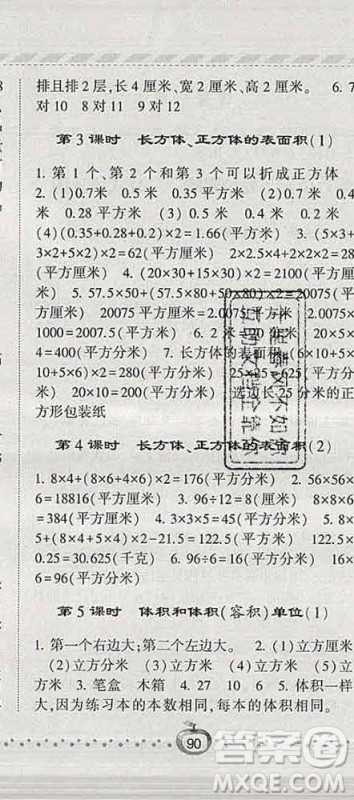 排且排2层,长4厘米、宽2厘米、高2厘米。 6. 7
对10 8对11 9对12
第3课时 长方体、正方体的表面积(1)
1. 第1个、第2个和第3个可以折成正方体
2. (1)0.7米 0.5米 0.35平方米 (2)0.7米
0.4米 0.28平方米 (3)0.5米 0.4米 0.2平方米
(4)(0.35+0.28+0.2)×2=1.66(平方米) 3. (5×3+
3×2+5×2)×2=62(平方厘米) 2×2.5×4+2×2×
2=28(平方厘米) 4. (20×30+15×30)×2=2100(平方
厘米) 5. 57.5×50+(57.5×80+50×80)×2=20075(平
方厘米) 20075平方厘米=2.0075平方米 2.0075×
1000=2007.5(平方米) 6. 2×20×10=400(平方厘米)
400×4=1600(平方厘米) 7. 长方体的表面积:(6×10+
10+5×6)×2=280(平方分米) 25×25=625(平
方分米) 选边长25分米的正
方形包装纸
第4课时 长方体、正方体的表面积(2)
1. 8×4+(8×6+4×6)×2=176(平方分米) 2. 56×56×
6=18816(平方厘米) 3. 96÷12=8(厘米) 8×8×6
=384(平方厘米) 4. 3×3×5=45(平方分米) 5. 8×
5+(8×5.5+5×5.5)×2-60.5=122.5(平方米) 122.5×
0.25=30.625(千克) 6. 96÷6=16(平方分米) 16×
6=96(平方分米)
第5课时 体积和体积(容积)单位(1)
1. 第一个右边大;第二个左边大。 2. (1)立方厘米
(2)立方分米 (3)立方米 (4)立方分米 (5)立方
厘米 3. 笔盒 木箱 4. 27 10 6 5. 体积一样
大,因为练习本的本数相同,每本的体积相同。
90
答案圈
MXQE.COM